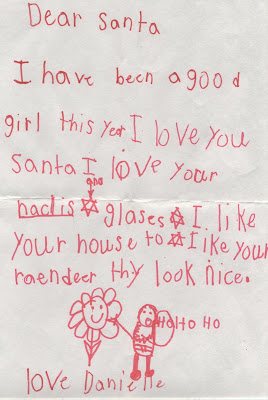 Dear Santa
I have been a good
girl this year I love you
Santa I love your
and
naclis glases I like
your house to I like your
raendeer thy look nice.
HoHo Ho
love Danielle